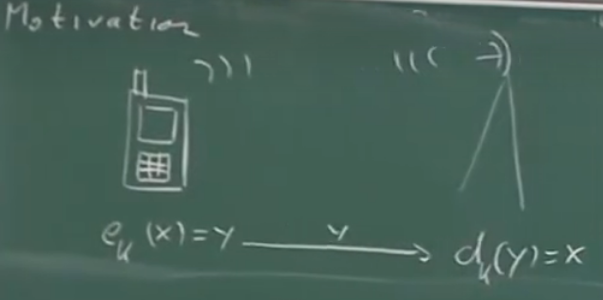 Motivation
y
e_k (x) = y
d_k (y) = x